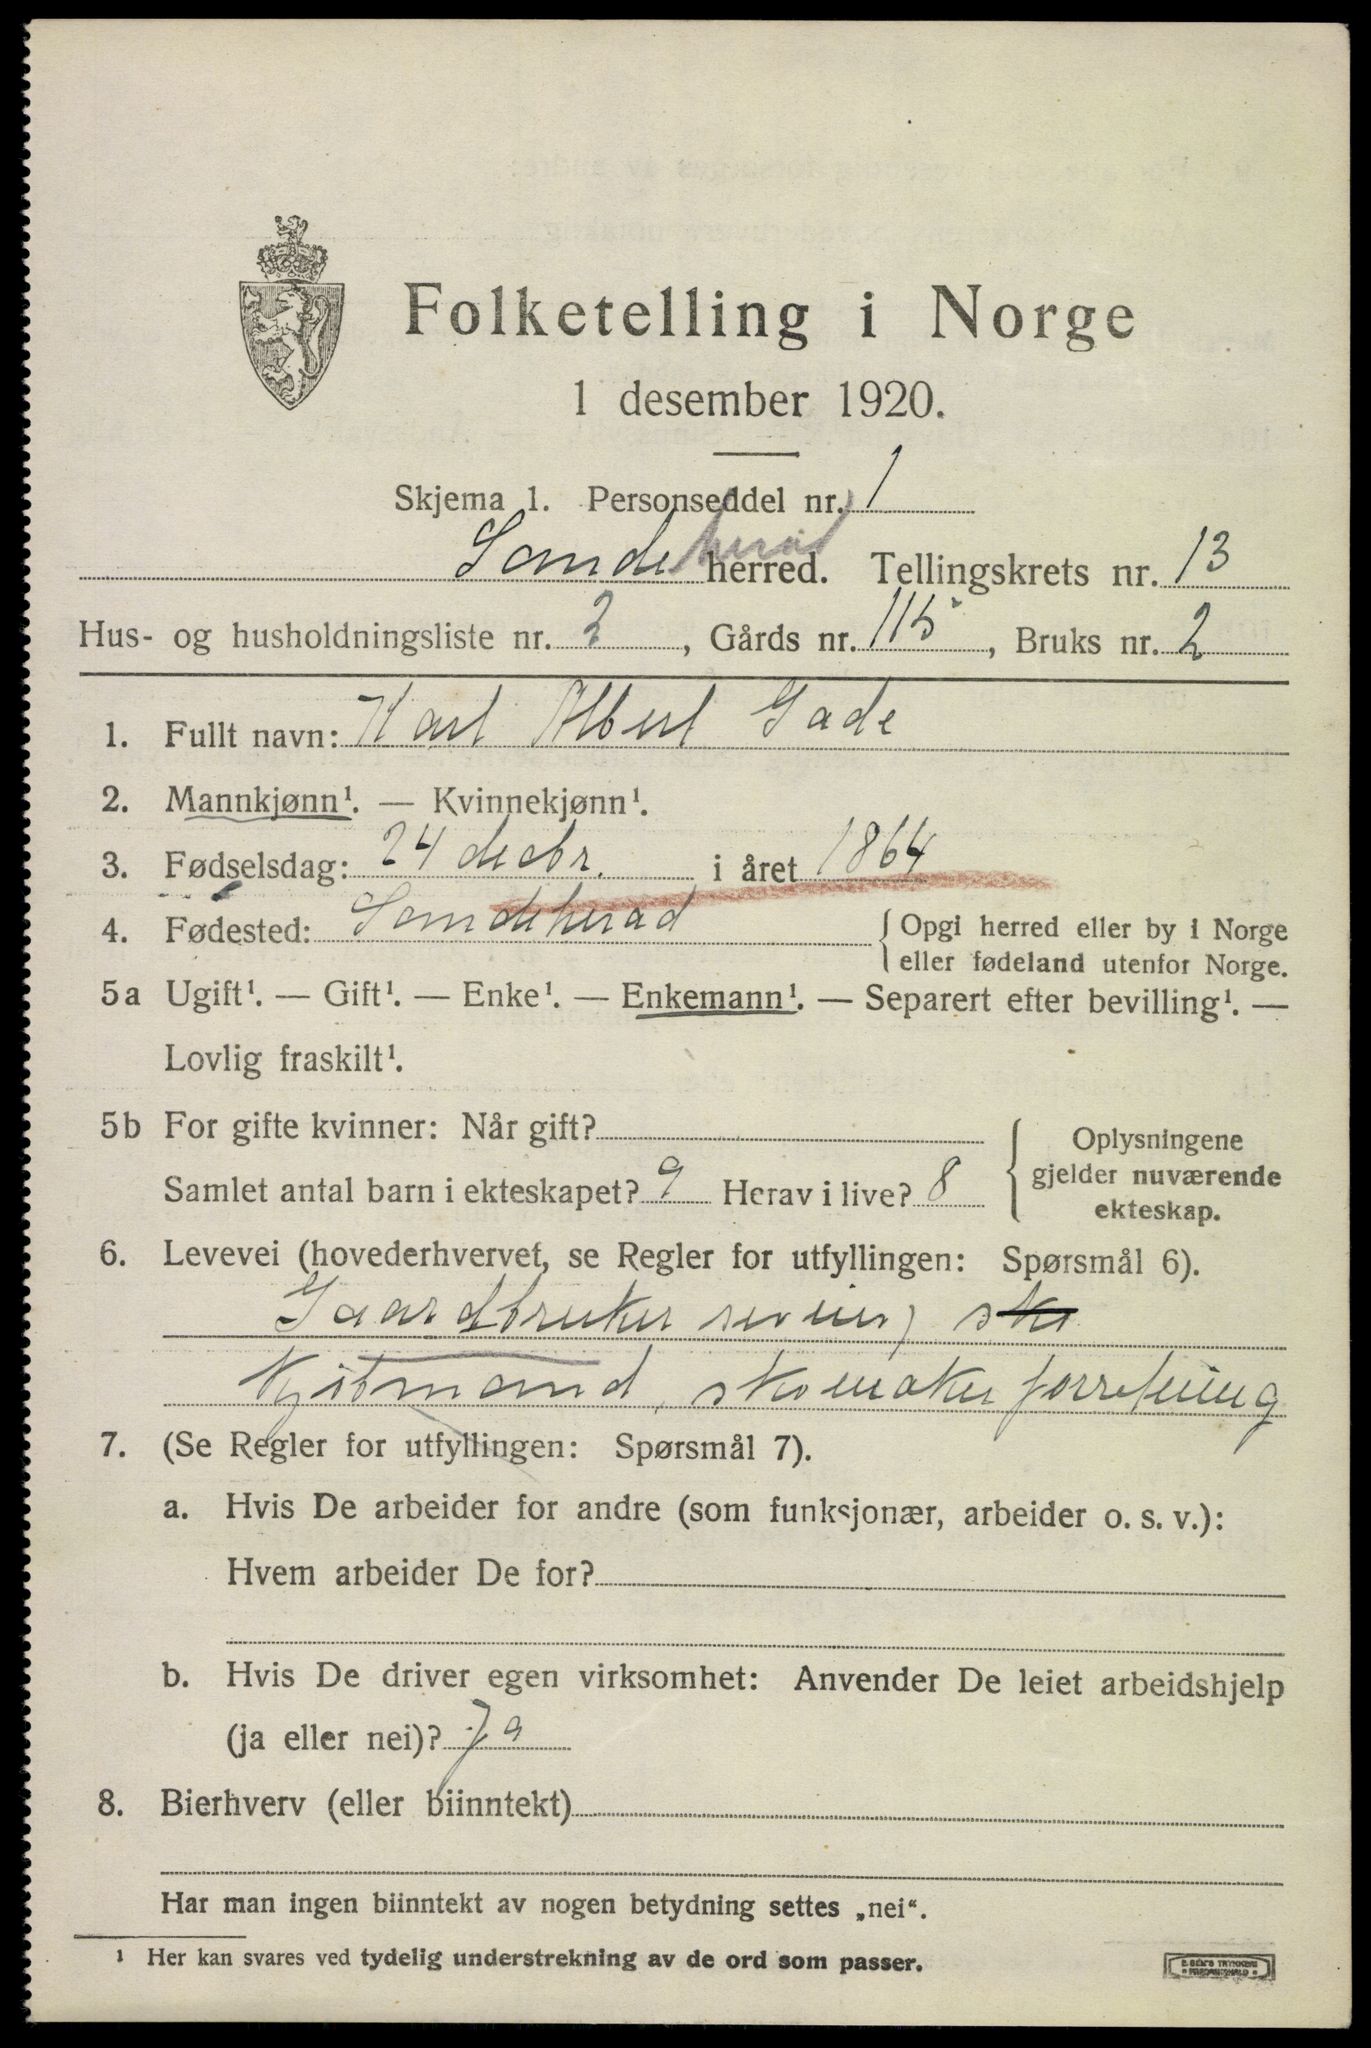 Folketelling i Norge
1 desember 1920.
Skjema 1. Personseddel nr. 1
Sandeherad herred. Tellingskrets nr. 13
Hus- og husholdningsliste nr. 2, Gårds nr. 115, Bruks nr. 2
1. Fullt navn: Karl Albert Gade
2. Mannkjønn¹. — Kvinnekjønn¹.
3. Fødselsdag: 24 decbr. i året 1864
4. Fødested: Sandeherad {Opgi herred eller by i Norge
eller fødeland utenfor Norge.
5a Ugift¹. — Gift¹. — Enke¹. — Enkemann¹. — Separert efter bevilling¹. —
Lovlig fraskilt¹.
5b For gifte kvinner: Når gift?
Samlet antal barn i ekteskapet? 9 Herav i live? 8
Oplysningene
gjelder nuværende
ekteskap.
6. Levevei (hovederhvervet, se Regler for utfyllingen: Spørsmål 6).
Gaardbruker ske
Kjøbmand, skomaker forretning
7. (Se Regler for utfyllingen: Spørsmål 7).
a. Hvis De arbeider for andre (som funksjonær, arbeider o. s. v.):
Hvem arbeider De for?
b. Hvis De driver egen virksomhet: Anvender De leiet arbeidshjelp
(ja eller nei)? Ja
8. Bierhverv (eller biinntekt)
Har man ingen biinntekt av nogen betydning settes „nei“.
¹ Her kan svares ved tydelig understrekning av de ord som passer.